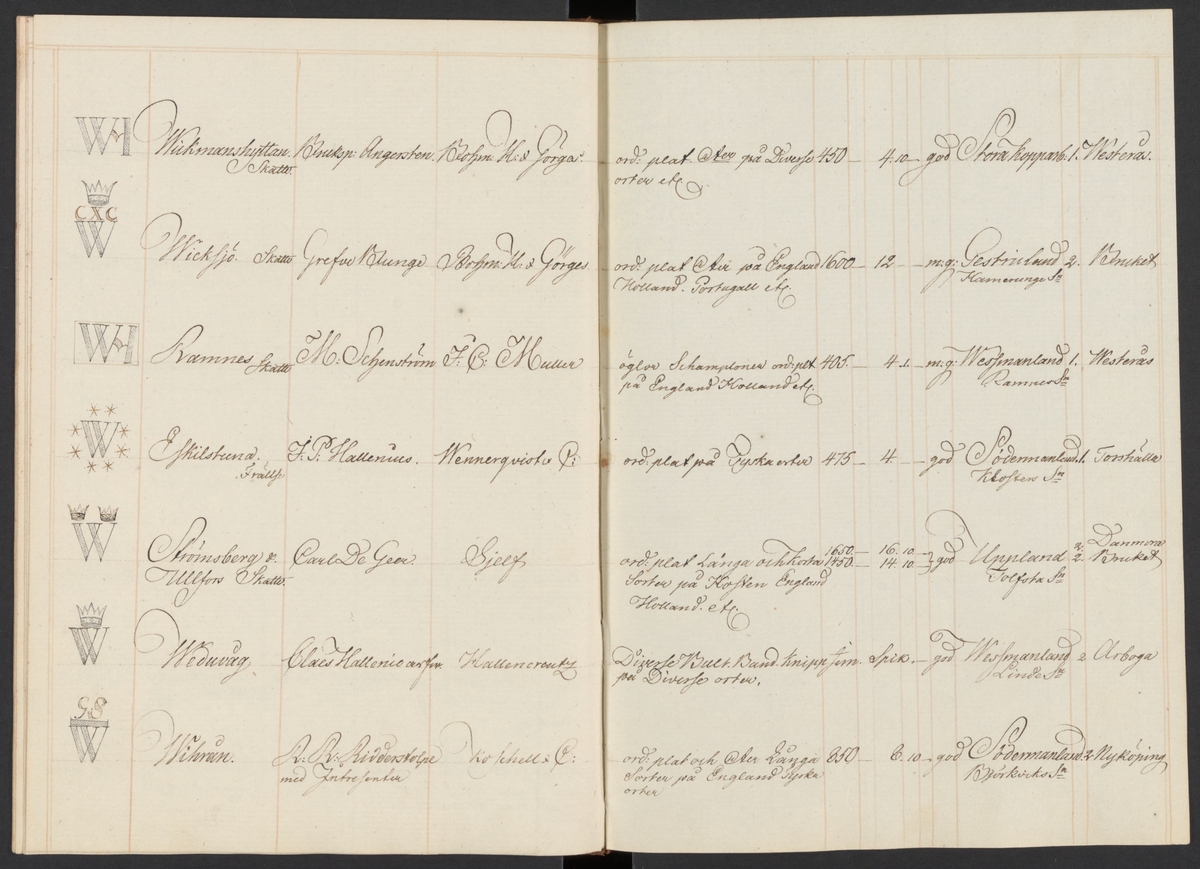 WH Wickmanshyttan. Bruksp: Angersten. Bohm H: & Görges. ord: plat &ter på Diverse 450 — 4.10 — god Stora Kopparb: 1. Westerås.
Skatte orter etc.
CXC
W Wicksjö. Skatte Grefve Bunge Bohm: H: & Görges ord: plat &ter på England 1600 — 12 — m: g: Gestrickland 2. Bruket
Holland. Portugall etc. Sn
WH Ramnes Skatte M: Schenström F: C: Muller öglor Schamploner ord: plt 405. — 4.1. — m: g: Wessmanland 1. Westerås
på England Holland etc. Ramnes Sn
W Eskilstuna. J: P: Hallenius. Wennerqvist & C: ord: plat på Tyska orter 475 — 4. — god Södermanland 1. Torshälla
Frälse Klosters Sn
W Strömsberg & Carl De Geer Gjelf ord: plat Långa och Korta 1650 — 16. 10 — god Uppland 2. Danmora
Ullfors Skatte Sorter på Kosten England 1450 — 14. 10 — Tolfsta Sn 2. Bruket
Holland. etc.
W Weduvåg, Claes Hallenii arfvr. Hallencreutz Diverse Bult. Band. Knipp jern. Spik. — god Wessmanland 2 Arboga
på Diverse orter. Linde Sn
GS
W Wihrun. R: R: Ridderstolpe Koschell & C: ord: plat och &ter Långa 850 — 8. 10 — god Södermanland 2 Nyköping
med Intresenter Sorter på England Tyska Björkviks Sn
orter